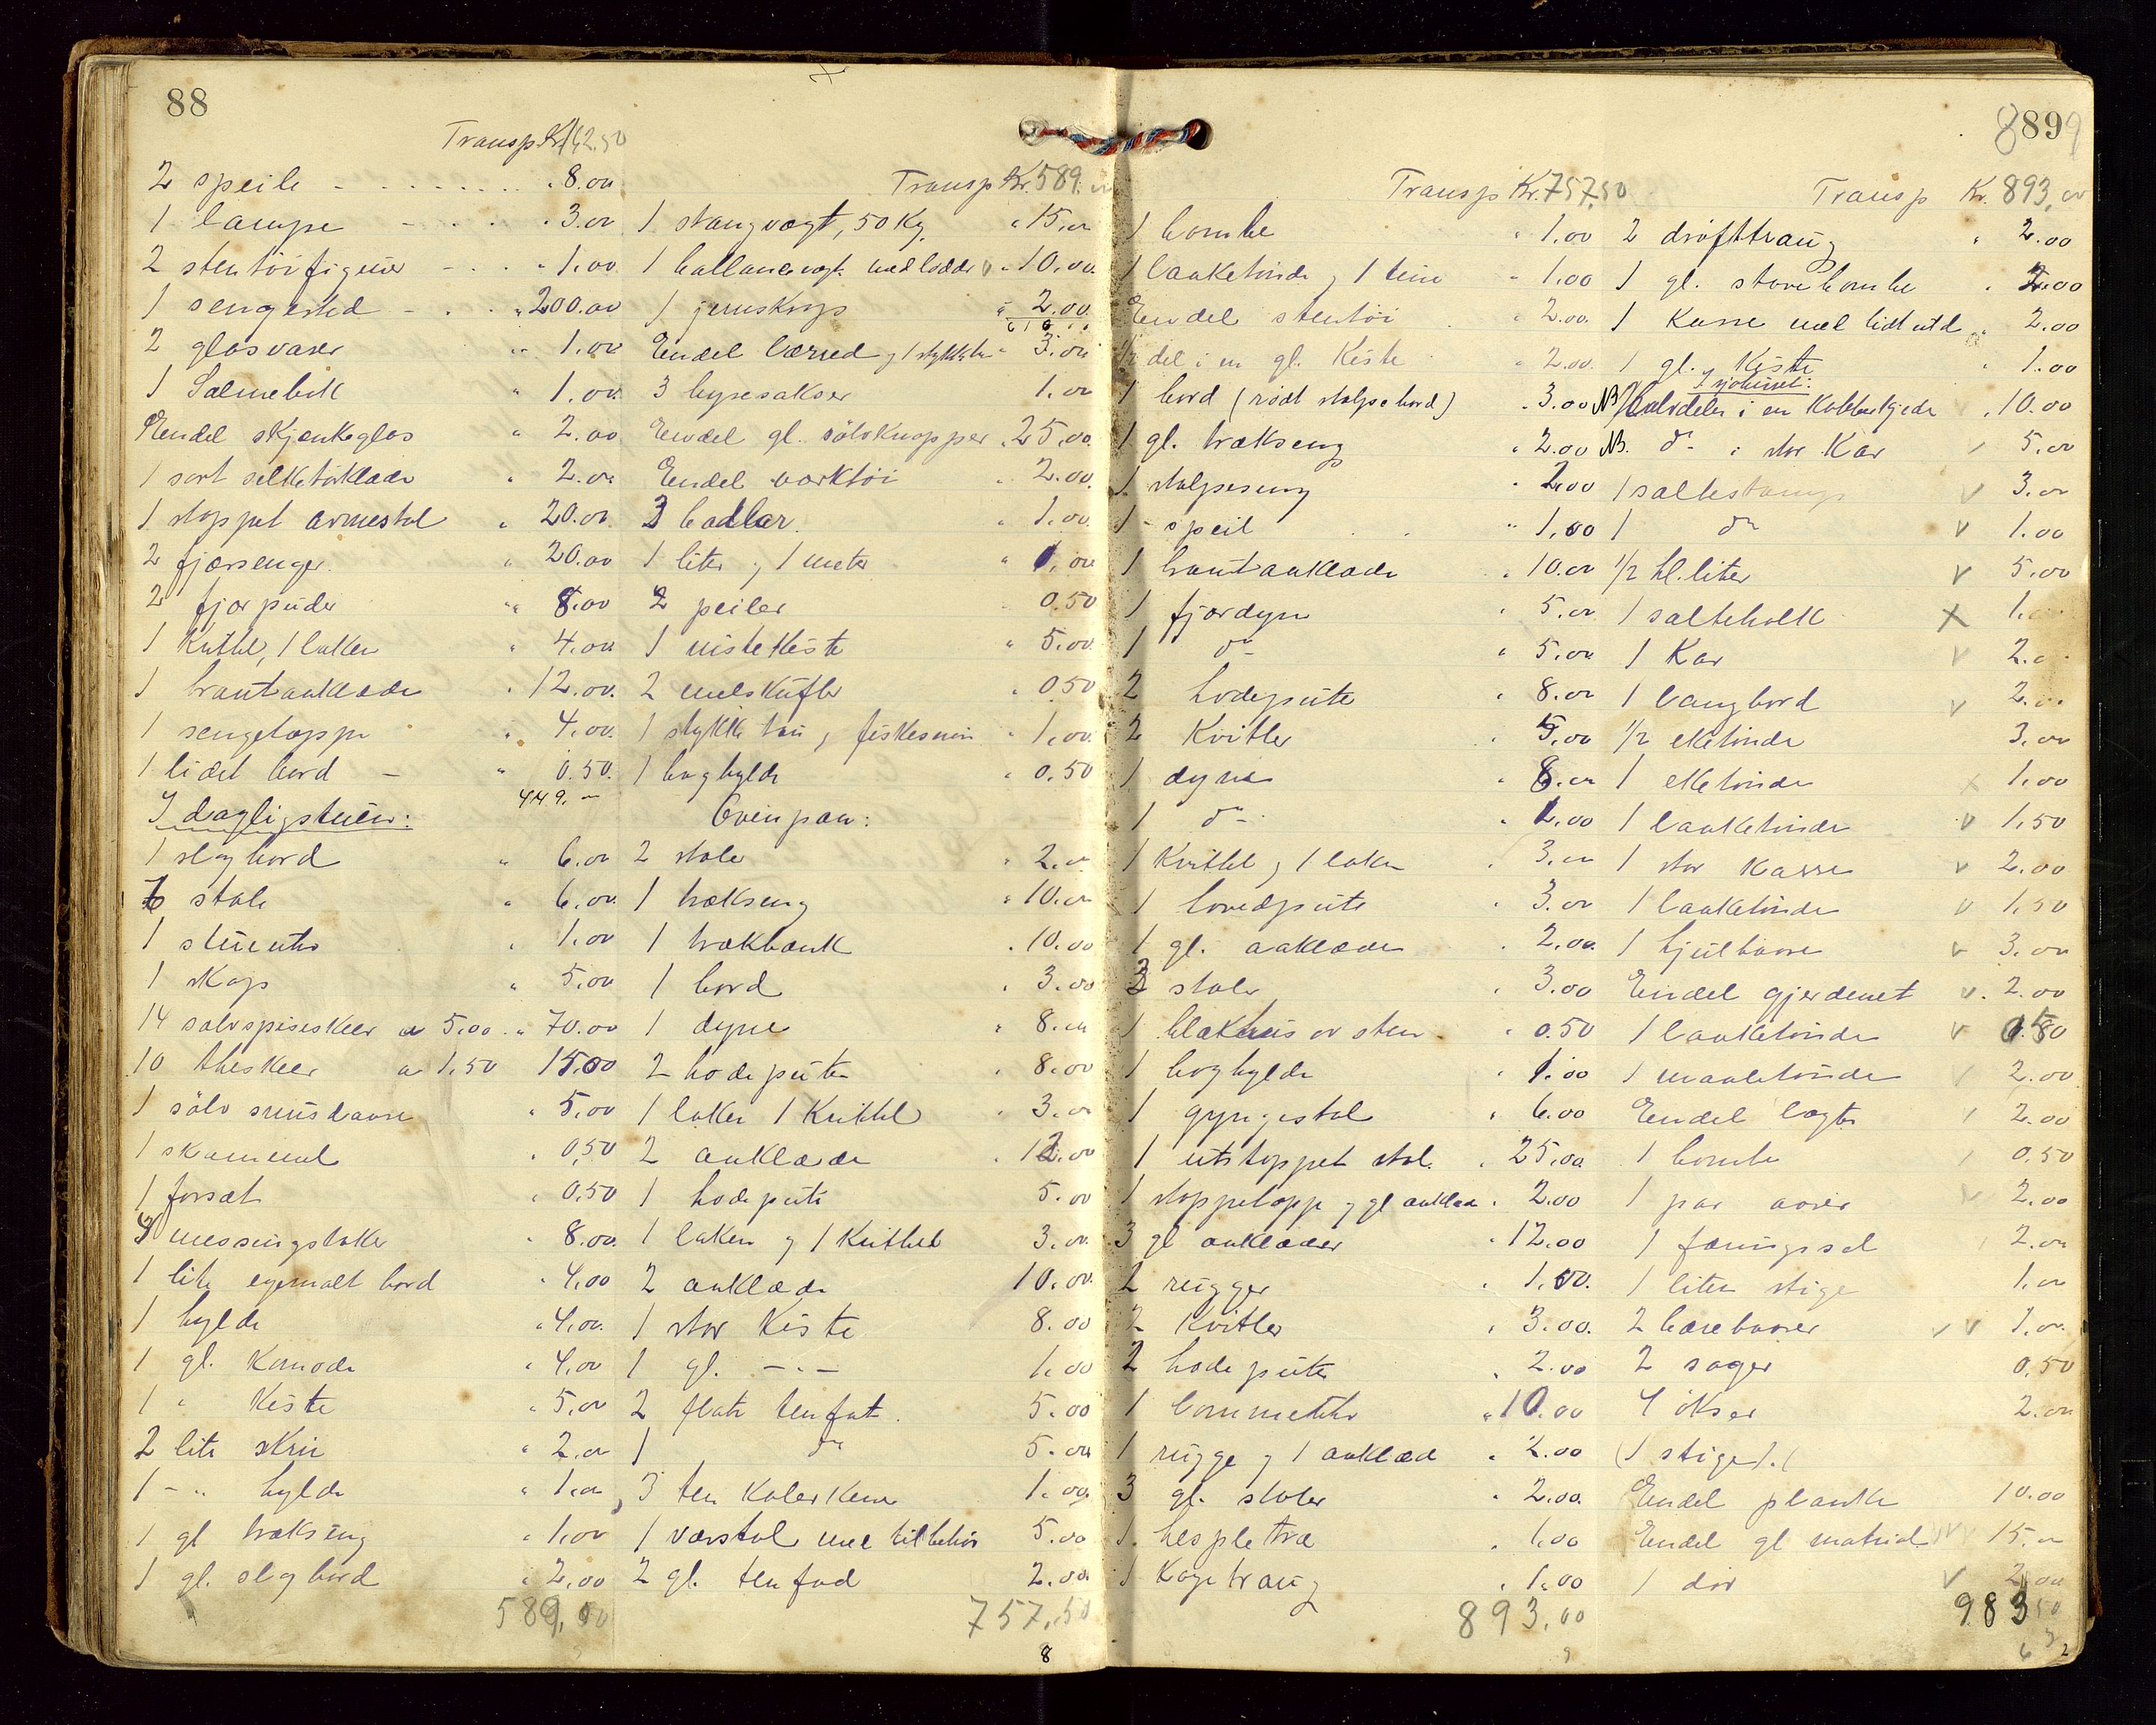 88
Transp. Kr 162.50
2 speile - - - - " 8.00
1 lampe - - - " 3.00
2 stentöifigurer - - - " 1.00
1 sengested - - - " 200.00
2 glasvaser " 1.00
1 Salmebok " 1.00
Endel skjenkeglas " 2.00
1 sort silketörklæde " 2.00
1 stoppet armestol " 20.00
2 fjærsenger " 20.00
2 fjærputer " 8.00
1 Kvittel, 1 laken " 4.00
1 brautaaklæde " 12.00
1 sengetæppe " 4.00
1 lidet bord - " 0.50
449. -
I dagligstuen:
1 slagbord " 6.00
6 stole " 6.00
1 stueuhr " 1.00
1 skap " 5.00
14 sølvspiseskeer a 5.00 " 70.00
10 theskeer a 1.50 15.00
1 sölv snusdaase " 5.00
1 skammel " 0.50
1 forsæt " 0.50
4 messingstaker " 8.00
1 lite egemalt bord " 4.00
1 hylde " 4.00
1 gl. Komode " 4.00
1 " Kiste " 5.00
2 lite skrin " 2.00
1 - " hylde " 1.00
1 gl trækseng " 1.00
1 gl. slagbord " 2.00
589,00
Transp Kr. 589.00
1 stangvægt, 50 Kg. " 15.00
1 ballancevægt med lodder v " 10.00
1 jernskrap " 2.00
616..
Endel lærred og 1 stykke " 3.00
3 hyresakser 1.00
Endel gl. sölvknapper " 25.00
Endel værktöi " 2.00
3 ballar " 1.00
1 liter og 1 meter " 1.00
2 peiler 0.50
1 nistekiste " 5.00
2 melskufler " 0.50
1 stykke tau og fiskesnøre " 1.00
1 boghylde " 0.50
Ovenpaa:
2 stole " 2.00
1 trækseng " 10.00
1 trækbænk " 10.00
1 bord " 3.00
1 dyne " 8.00
2 hodeputer " 8.00
1 laken 1 Kvittel " 3.00
2 aaklæde " 12.00
1 hodepute 5.00
1 laken og 1 Kvittel 3.00
2 aaklæde 10.00
1 stor Kiste 8.00
1 gl. - " - 1.00
2 flate tenfat 5.00
1 do 5.00
3 ten Kalerkener 1.00
1 vævstol med tilbehör 5.00
2 gl. tenfad 2.00
757.50
8
8899
Transp Kr. 757,50
1 bombe " 1.00
1 laaketönde og 1 tine " 1.00
Endel stentöi " 2.00
1/2 del i en gl. Kiste " 2.00
1 bord (rödt stolpebord) " 3.00
1 gl. trækseng " 2.00
1 stolpeseng " 2.00
1 speil " 1.00
1 brautaaklæde " 10.00
1 fjærdyne " 5.00
1 do " 5.00
2 hodepute " 8.00
2 Kvitler " 5.00
1 dyne " 8.00
1 do " 1.00
1 Kvittel og 1 laken " 3.00
1 hovedpute " 3.00
1 gl. aaklæde " 2.00
3 stoler " 3.00
1 blækhus av sten " 0.50
1 boghylde " 1.00
1 gyngestol " 6.00
1 utstoppet stol " 25.00
1 stoppetæppe og gl aaklæde " 2.00
3 gl aaklæder " 12.00
2 rugger " 1.00
2 Kvitler " 3.00
2 hodepute " 2.00
1 lommeuhr " 10.00
1 rugge og 1 aaklæde " 2.00
3 gl. stoler " 2.00
1 hespletræ " 1.00
1 Kagetraug " 1.00
893,00
Transp Kr. 893,00
2 dröfttraug " 2.00
1 gl. stovebombe " 2.00
1 Kasse med lidt uld " 2.00
1 gl. Kiste " 1.00
I sjøhuset:
NB Halvdelen i en Kobberkjedel " 10.00
NB. do i stor Kar 5.00
1 saltestamp v 3.00
1 do v 1.00
1/2 hl. liter v 5.00
1 salteholk x 1.
1 Kar v 2.00
1 langbord v 2.00
1/2 eketönde 3.00
1 eketönde x 1.00
1 laaketönde v 1.50
1 stor Kasse v 2.00
1 laaketönde v 1.50
1 hjulbaare v 3.00
Endel gjerdenet v. 2.00
1 laaketönde v 0.50
1 maaletönde v 2.00
Endel lægter 2.00
1 bombe 0.50
1 par aarer v 2.00
1 færingssel 2.00
1 liten stige 1.00
2 bærebaarer v v 1.00
2 sager 0.50
4 ökser 2.00
(1 stige).(
Endel planke 10.00
Endel gl material 15.00
1 dör v 2.00
983 50